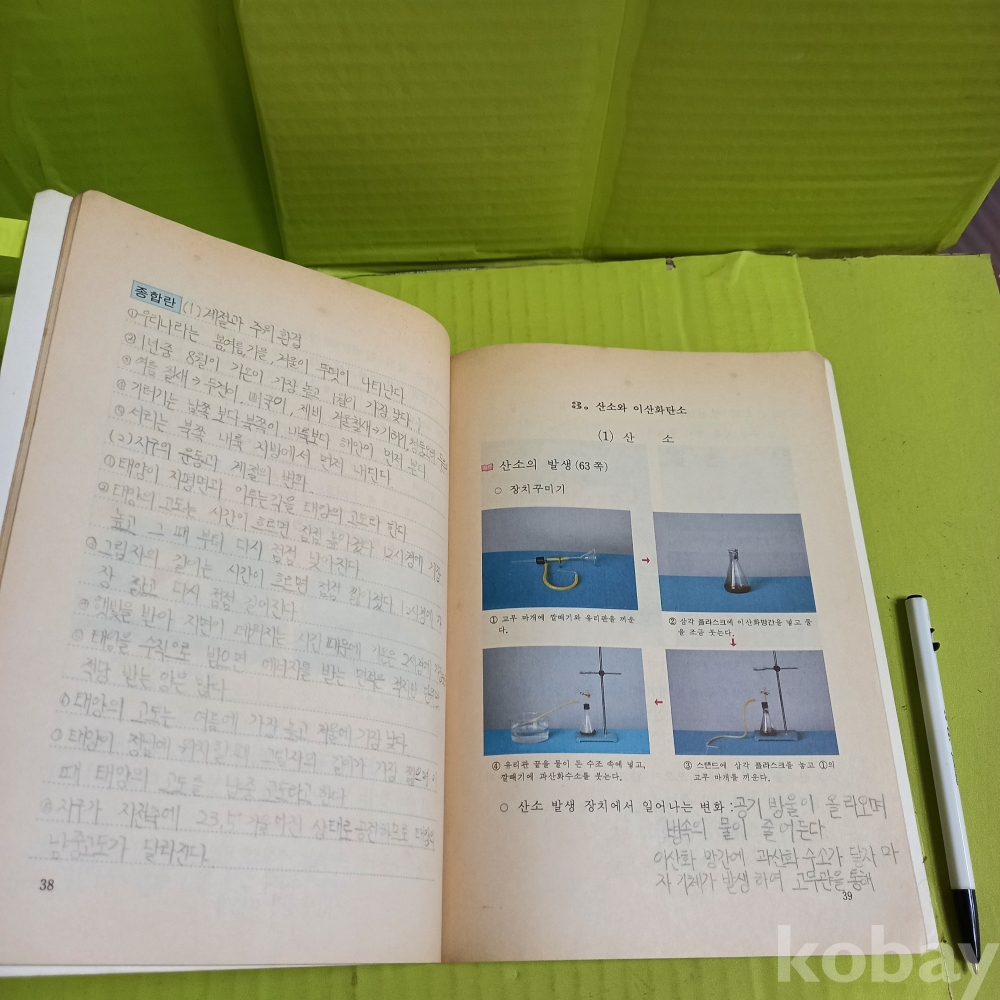 종합란 (1) 계절과 주위 환경
① 우리나라는 봄여름,가을,겨울이 뚜렷이 나타난다.
② 1년중 8월이 기온이 가장 높고 1월이 가장 낮다.
여름 철새→두견이, 뻐꾸이, 제비 겨울철새→기러기,청둥오리
기러기는 남쪽보다 북쪽이 내륙보다 해안이 먼저 본다
서리는 북쪽 내륙 지방에서 먼저 내린다.
(2) 지구의 운동과 계절의 변화
① 태양이 지평면과 이루는각을 태양의 고도라 한다
② 태양의 고도는 시간이 흐르면 점점 높아졌다 12시경에 가장
높고 그 때 부터 다시 점점 낮아진다.
③ 그림자의 길이는 시간이 흐르면 점점 짧아졌다. 12시경에 가
장 짧고 다시 점점 길어진다.
햇빛을 받아 지면이 데워지는 시간 때문에 기온은 2시경에
태양을 수직으로 받으면 에너지를 받는 면적은 작지만
받는 양은 많다.
태양의 고도는 여름에 가장 높고 겨울에 가장 낮다
태양이 정남에 위치할때 그림자의 길이가 가장 짧으며 이
때 태양의 고도를 남중 고도라고 한다.
지구가 자전축에 23.5° 기울어진 상태로 공전하므로
남중고도가 달라진다.
38
3. 산소와 이산화탄소
(1) 산 소
산소의 발생(63 쪽)
○ 장치꾸미기
① 고무 마개에 깔때기와 유리관을 끼운
다.
② 삼각 플라스크에 이산화망간을 넣고 물
을 조금 붓는다.
④ 유리관 끝을 물이 든 수조 속에 넣고,
깔때기에 과산화수소를 붓는다.
③ 스탠드에 삼각 플라스크를 놓고 ①의
고무 마개를 끼운다.
○ 산소 발생 장치에서 일어나는 변화 : 공기 방울이 올라오며
병속의 물이 줄어든다
이산화 망간에 과산화 수소가 닿자 마
자 기체가 발생하여 고무관을 통해
39
kobay